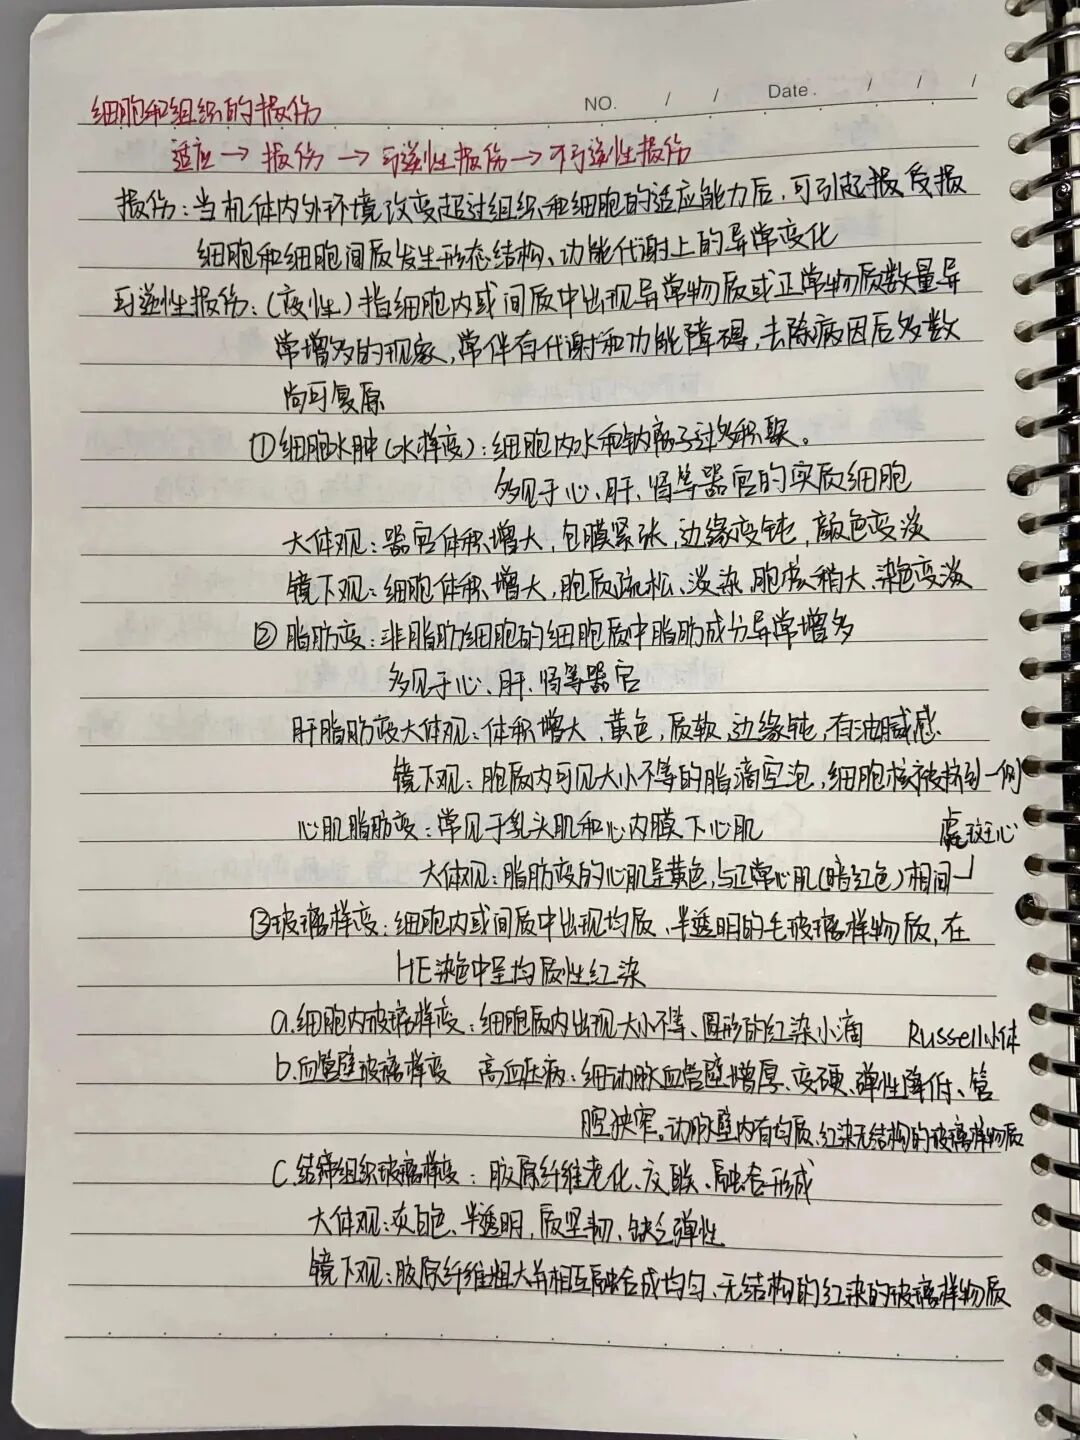 NO. / / Date. / / /
细胞和组织的损伤
适应 → 损伤 → 可逆性损伤 → 不可逆性损伤
损伤：当机体内外环境改变超过组织和细胞的适应能力后，可引起损及损
细胞和细胞间质发生形态结构、功能代谢上的异常变化
可逆性损伤：(变性) 指细胞内或间质中出现异常物质或正常物质数量异
常增多的现象，常伴有代谢和功能障碍，去除病因后多数
尚可复原
①细胞水肿(水样变)：细胞内水和钠离子过多积聚。
多见于心、肝、肾等器官的实质细胞
大体观：器官体积增大，包膜紧张，边缘变钝，颜色变淡
镜下观：细胞体积增大，胞质疏松、淡染，胞核稍大、染色变淡
② 脂肪变：非脂肪细胞的细胞质中脂肪成分异常增多
多见于心、肝、肾等器官
肝脂肪变大体观：体积增大、黄色，质软、边缘钝，有油腻感
镜下观：胞质内可见大小不等的脂滴空泡，细胞核被挤到一侧
心肌脂肪变：常见于乳头肌和心内膜下心肌
虎斑心
大体观：脂肪变的心肌呈黄色，与正常心肌(暗红色)相间
③玻璃样变：细胞内或间质中出现均质、半透明的毛玻璃样物质，在
HE染色中呈均质性红染
a.细胞内玻璃样变：细胞质内出现大小不等、圆形的红染小滴 Russell小体
b.血管壁玻璃样变 高血压病：细动脉血管壁增厚、变硬、弹性降低、管
腔狭窄。动脉壁内有均质、红染无结构的玻璃样物质
C.结缔组织玻璃样变：胶原纤维老化、交联、融合形成
大体观：灰白色、半透明，质坚韧、缺乏弹性
镜下观：胶原纤维粗大并相互融合成均匀、无结构的红染的玻璃样物质